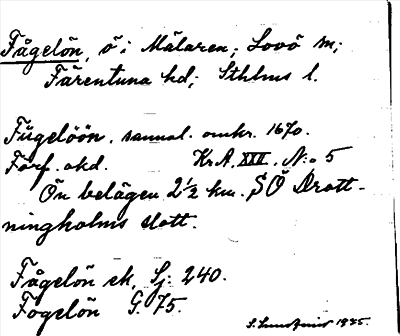 Fågelön, ö i Mälaren; Lovö sn;
Färentuna hd; Sthlms l.
Fügelöön. sannol. omkr. 1670.
Förf. okd. Kr.A. XXII. N:o 5
Ön belägen 2½ km. SÖ Drott-
ningholms slott.
Fågelön ek, Sj. 240.
Fogelön G. 75.
1935.